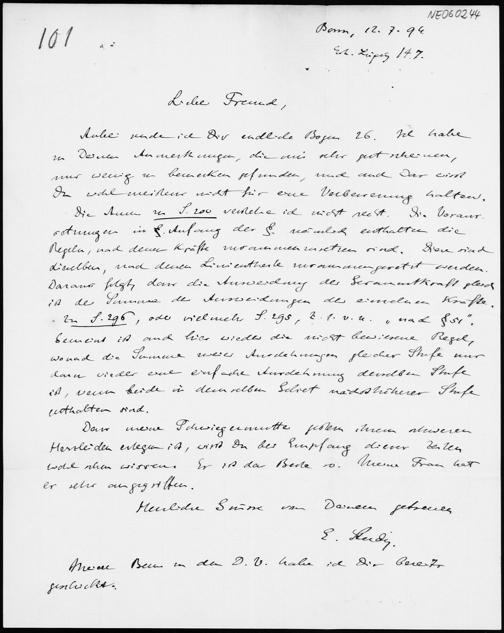 NE060244
101
Bonn, 12.7.94
Erh. Leipzig 14.7.
Lieber Freund,
Anbei sende ich Dir endlich Bogen 26. Ich habe
zu Deinen Anmerkungen, die mir sehr gut scheinen,
nur wenig zu bemerken gefunden, und auch das wirst
Du wohl meistens nicht für eine Verbesserung halten.
Die Anm. zu S. 200 verstehe ich nicht recht. Die Voraus-
setzungen in Anfang der §. nämlich enthalten die
Regeln, nach denen Kräfte zusammenzusetzen sind. Diese sind
dieselben, nach denen Linientheile zusammengesetzt werden.
Daraus folgt, dass die Ausweichung der Gesammtkraft gleich
ist der Summe der Ausweichungen der einzelnen Kräfte.
Zu S. 296, oder vielmehr S. 295, Z. 1. v. u. "nach § 51".
Gemeint ist auch hier wieder die nicht bewiesene Regel,
wonach die Summe zweier Ausdehnungen gleicher Stufe nur
dann wieder eine einfache Ausdehnung derselben Stufe
ist, wenn beide in demselben Gebiet nächsthöherer Stufe
enthalten sind.
Dass meine Schwiegermutter gestern ihrem schweren
Herzleiden erlegen ist, wirst Du bei Empfang dieser Zeilen
wohl schon wissen. Er ist das Beste so. Meine Frau hat
er sehr angegriffen.
Herzliche Grüsse von Deinem getreuen
E. Study.
Meinen in den D. V. habe ich Dir bereits
geschickt.